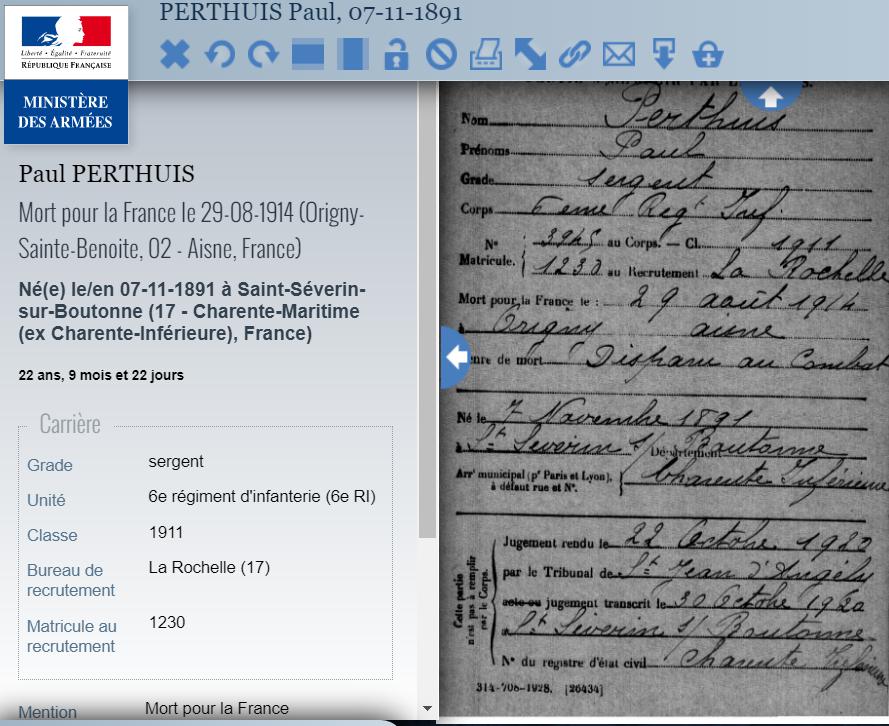 PERTHUIS Paul, 07-11-1891
Liberté • Égalité • Fraternité
RÉPUBLIQUE FRANÇAISE
MINISTÈRE
DES ARMÉES
Paul PERTHUIS
Mort pour la France le 29-08-1914 (Origny-
Sainte-Benoite, 02 - Aisne, France)
Né(e) le/en 07-11-1891 à Saint-Séverin-
sur-Boutonne (17 - Charente-Maritime
(ex Charente-Inférieure), France)
22 ans, 9 mois et 22 jours
Carrière
Grade sergent
Unité 6e régiment d'infanterie (6e RI)
Classe 1911
Bureau de
recrutement La Rochelle (17)
Matricule au
recrutement 1230
Mention Mort pour la France
Nom Perthuis
Prénoms Paul
Grade sergent
Corps 6eme Regt Inf.
N° 3945 au Corps. — Cl. 1911
Matricule. 1230 au Recrutement La Rochelle
Mort pour la France le : 29 août 1914
à Origny aisne
enre de mort Disparu au Combat
Né le 7 Novembre 1891
à St Severin s/ Boutonne Département
Arrt municipal (pr Paris et Lyon),
à défaut rue et N°. Charente Inférieure
Cette partie
n'est pas à remplir
par le Corps.
Jugement rendu le 22 Octobre 1920
par le Tribunal de St Jean d'Angély
acte ou jugement transcrit le 30 Octobre 1920
à St Séverin s/ Boutonne
N° du registre d'état civil Charente Inférieure
314-708-1928. [26434]